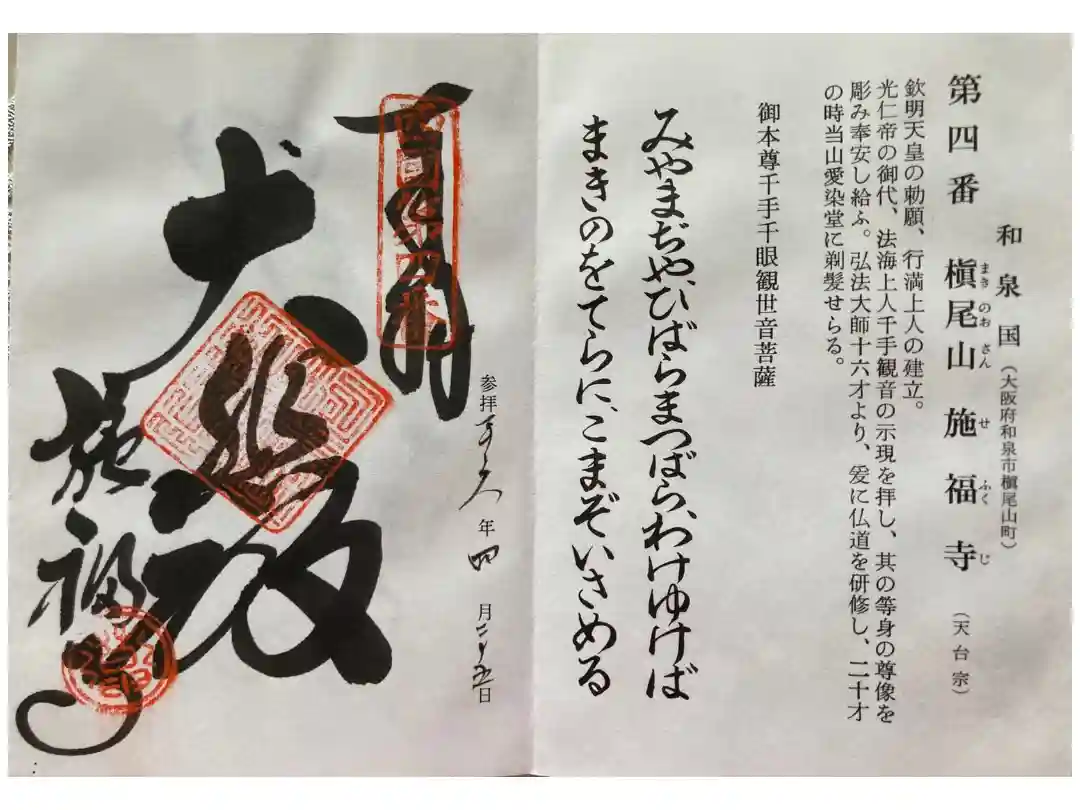 和泉国（大阪府和泉市槇尾山町）
第四番 槇尾山 施福寺（天台宗）
まき のお さん せ ふく じ
欽明天皇の勅願、行満上人の建立。
光仁帝の御代、法海上人千手観音の示現を拝し、其の等身の尊像を
彫み奉安し給ふ。弘法大師十六才より、爰に仏道を研修し、二十才
の時当山愛染堂に剃髪せらる。
御本尊千手千眼観世音菩薩
みやまぢや、ひばらまつばら、わけゆけば
まきのをてらに、こまぞいさめる
参拝 年四月二十五日
西国第四番
大悲殿
施福寺